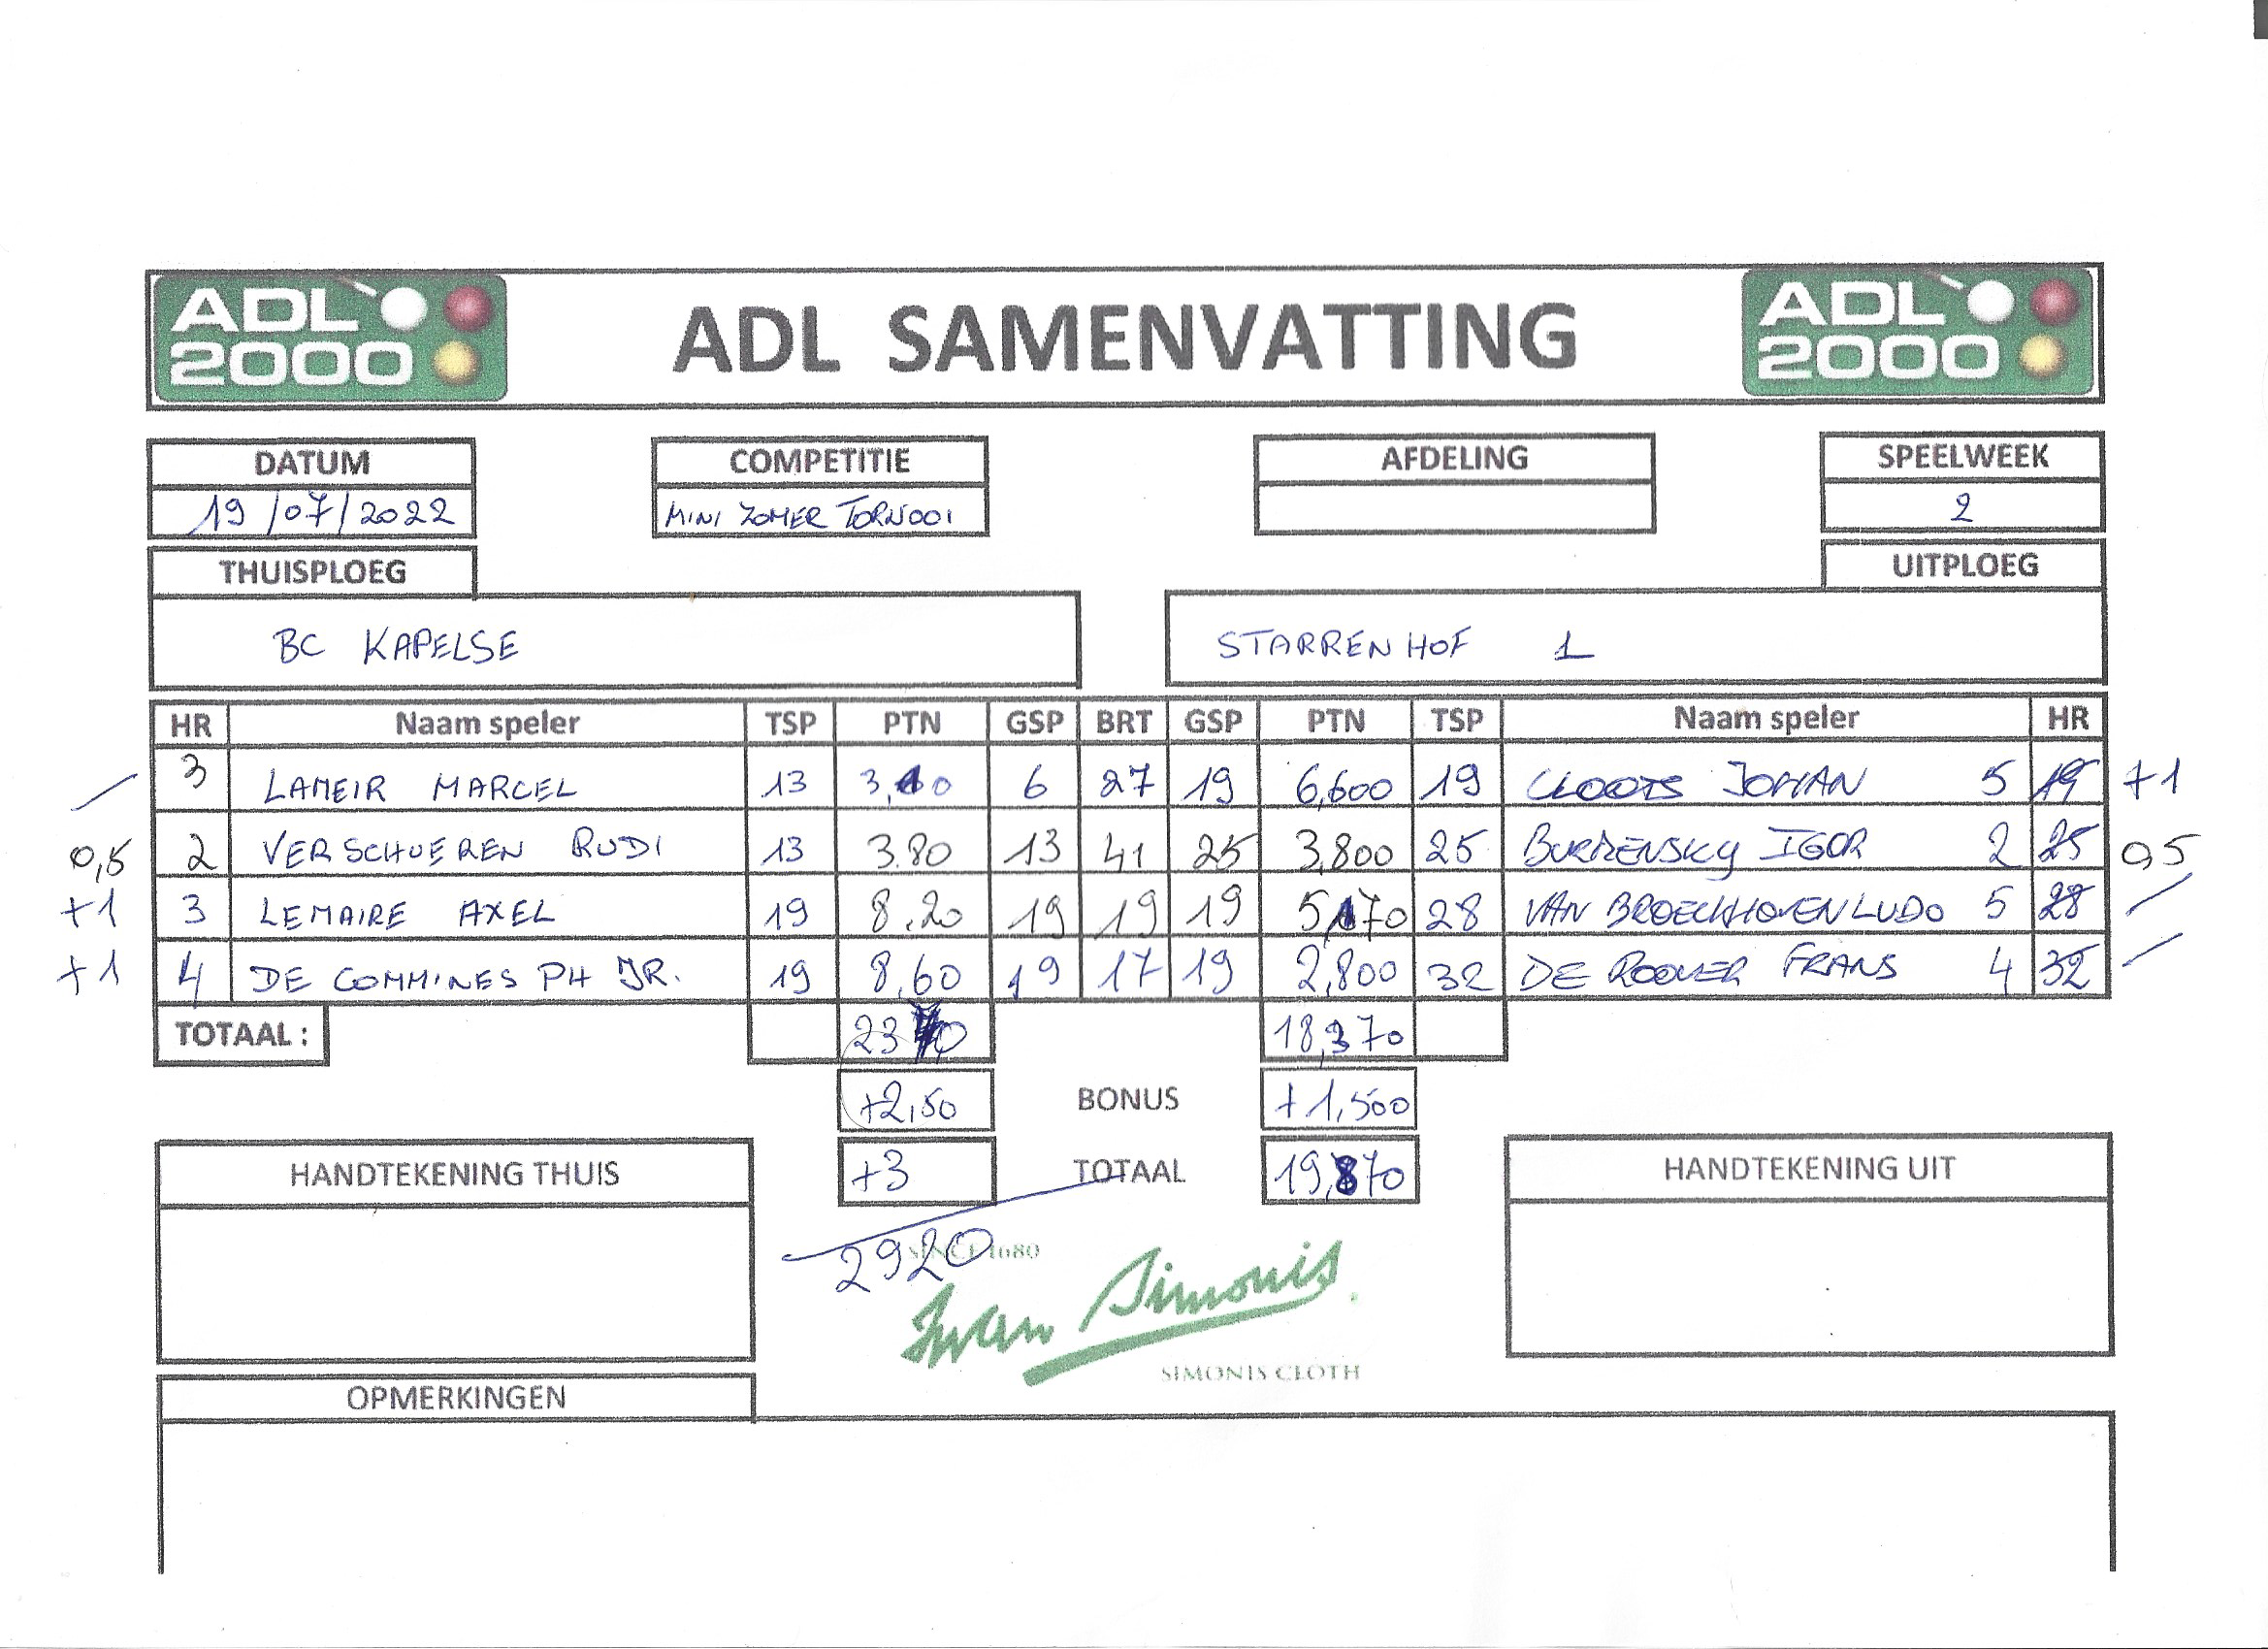 ADL 2000 ADL SAMENVATTING ADL 2000
DATUM COMPETITIE AFDELING SPEELWEEK
19/07/2022 MINI ZOMER TORNOOI 2
THUISPLOEG UITPLOEG
BC KAPELSE STARRENHOF 1
HR Naam speler TSP PTN GSP BRT GSP PTN TSP Naam speler HR
3 LAMEIR MARCEL 13 6 27 19 6,600 19 CLOOTS JOHAN 5 19 +1
0,5 2 VERSCHUEREN RUDI 13 3.80 13 41 25 3,800 25 IGOR 2 25 0,5
+1 3 LEMAIRE AXEL 19 8.20 19 19 19 5,170 28 VAN BROECKHOVEN LUDO 5 28
+1 4 DE COMMINES PH JR. 19 8,60 19 17 19 2,800 32 DE ROOVER FRANS 4 32
TOTAAL : 18,370
+2,50 BONUS +1,500
HANDTEKENING THUIS +3 TOTAAL 19,870 HANDTEKENING UIT
2920
SINCE 1680
Iwan Simonis
SIMONIS CLOTH
OPMERKINGEN